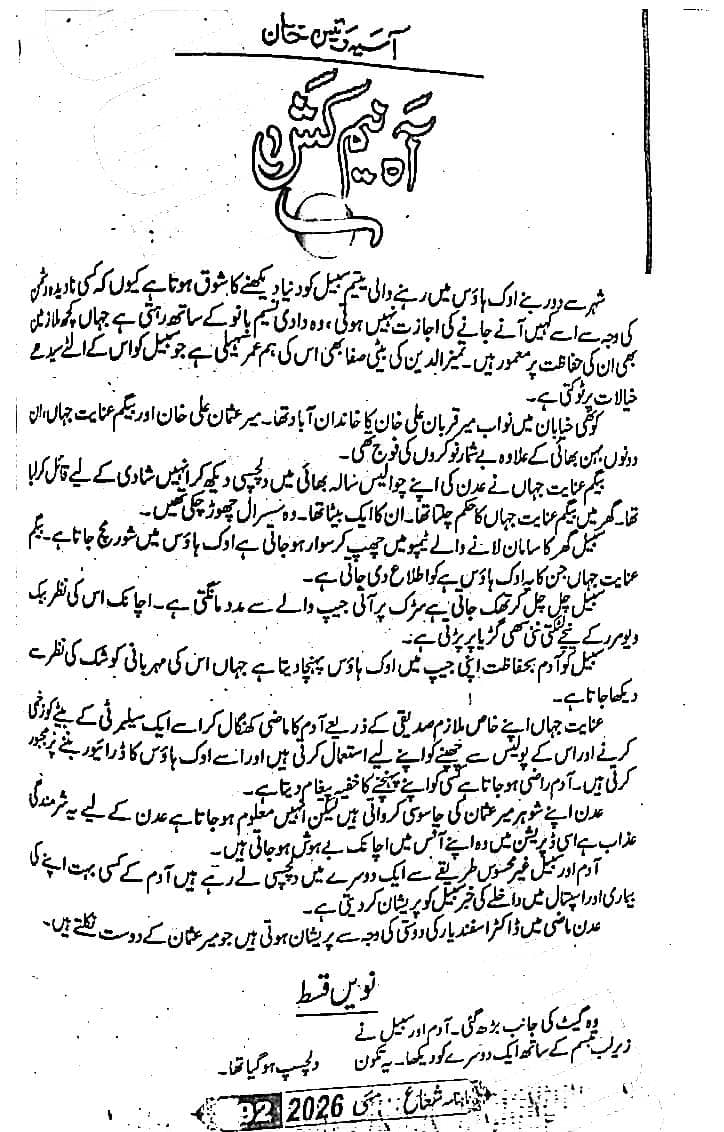 آسیہ رئیس خان
آہ نیم کش
شہر سے دور بنے اوک ہاؤس میں رہنے والی یتیم سبیل کو دنیا دیکھنے کا شوق ہوتا ہے کیوں کہ کسی نادیدہ دشمن
کی وجہ سے اسے کہیں آنے جانے کی اجازت نہیں ہوتی، وہ دادی نسیم بانو کے ساتھ رہتی ہے جہاں کچھ ملازمین
بھی ان کی حفاظت پر معمور ہیں۔ نمیز الدین کی بیٹی صفا بھی اس کی ہم عمر سہیلی ہے جو سبیل کو اس کے الٹے سیدھے
خیالات پر ٹوکتی ہے۔
کوٹھی خیابان میں نواب میر قربان علی خان کا خاندان آباد تھا۔ میر عثمان علی خان اور بیگم عنایت جہاں، ان
دونوں بہن بھائی کے علاوہ بے شمار نوکروں کی فوج تھی۔
بیگم عنایت جہاں نے عدن کی اپنے چوالیس سالہ بھائی میں دلچسپی دیکھ کر انہیں شادی کے لیے قائل کر لیا
تھا۔ گھر میں بیگم عنایت جہاں کا حکم چلتا تھا۔ ان کا ایک بیٹا تھا۔ وہ سسرال چھوڑ چکی تھیں۔
سبیل گھر کا سامان لانے والے ٹیمپو میں چھپ کر سوار ہو جاتی ہے اوک ہاؤس میں شور مچ جاتا ہے۔ بیگم
عنایت جہاں جن کا یہ اوک ہاؤس ہے کو اطلاع دی جاتی ہے۔
سبیل چل چل کر تھک جاتی ہے سڑک پر آتی جیپ والے سے مدد مانگتی ہے۔ اچانک اس کی نظر بیک
ویو مرر کے نیچے لٹکتی ننی بھی گڑیا پر پڑتی ہے۔
سبیل کو آدم بحفاظت اپنی جیپ میں اوک ہاؤس پہنچا دیتا ہے جہاں اس کی مہربانی کو شک کی نظر سے
دیکھا جاتا ہے۔
عنایت جہاں اپنے خاص ملازم صدیقی کے ذریعے آدم کا ماضی کھنگال کر اسے ایک سیلبرٹی کے بیٹے کو زخمی
کرنے اور اس کے پولیس سے چھپنے کو اپنے لیے استعمال کرتی ہیں اور اسے اوک ہاؤس کا ڈرائیور بننے پر مجبور
کرتی ہیں۔ آدم راضی ہو جاتا ہے کسی کو اپنے پہنچنے کا خفیہ پیغام دیتا ہے۔
عدن اپنے شوہر میر عثمان کی جاسوسی کرواتی ہیں لیکن انہیں معلوم ہو جاتا ہے عدن کے لیے یہ شرمندگی
عذاب ہے اسی ڈپریشن میں وہ اپنے آفس میں اچانک بے ہوش ہو جاتی ہیں۔
آدم اور سبیل غیر محسوس طریقے سے ایک دوسرے میں دلچسپی لے رہے ہیں آدم کے کسی بہت اپنے کی
بیماری اور اسپتال میں داخلے کی خبر سبیل کو پریشان کر دیتی ہے۔
عدن ماضی میں ڈاکٹر اسفندیار کی دوستی کی وجہ سے پریشان ہوتی ہیں جو میر عثمان کے دوست نکلتے ہیں۔
نویں قسط
وہ گیٹ کی جانب بڑھ گئی۔ آدم اور سبیل نے
زیر لب تبسم کے ساتھ ایک دوسرے کو دیکھا۔ یہ تکون دلچسپ ہو گیا تھا۔
ماہنامہ شعاع مئی 2026 92